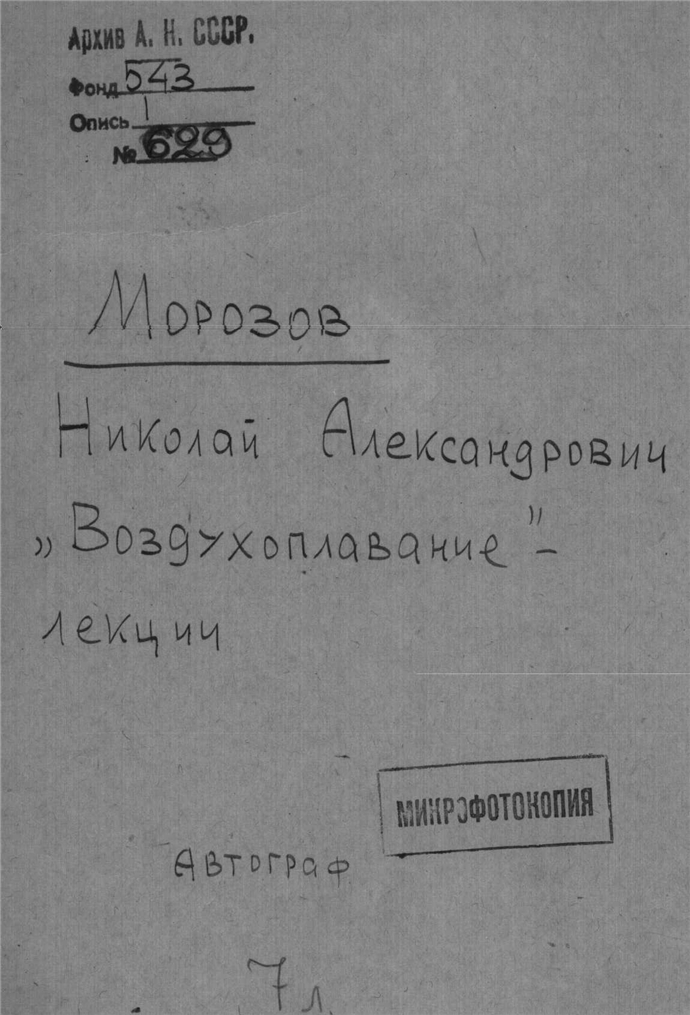 Архив А. Н. СССР.
Фонд 543
Опись 1
№ 629
Морозов
Николай Александрович
„Воздухоплавание" –
лекции
МИКРОФОТОКОПИЯ
Автограф
7 л.